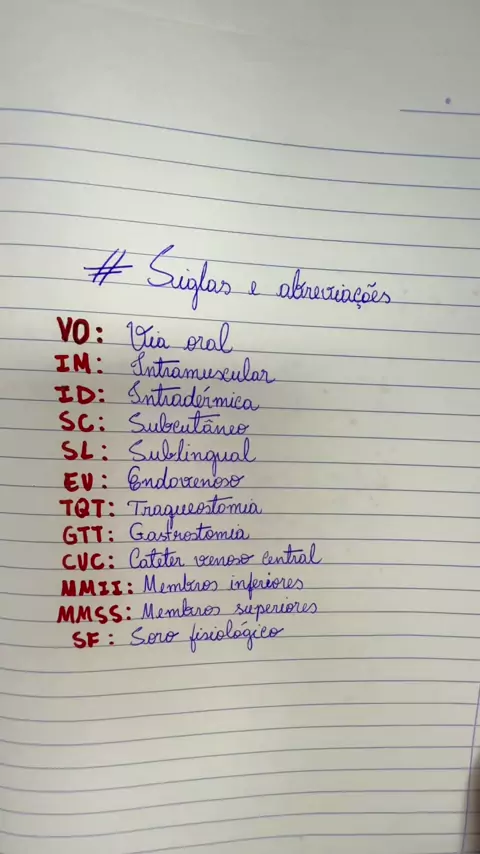 # Siglas e abreviações
VO: Via oral
IM: Intramuscular
ID: Intradérmica
SC: Subcutâneo
SL: Sublingual
EV: Endovenoso
TQT: Traqueostomia
GTT: Gastrostomia
CVC: Cateter venoso central
MMII: Membros inferiores
MMSS: Membros superiores
SF: Soro fisiológico